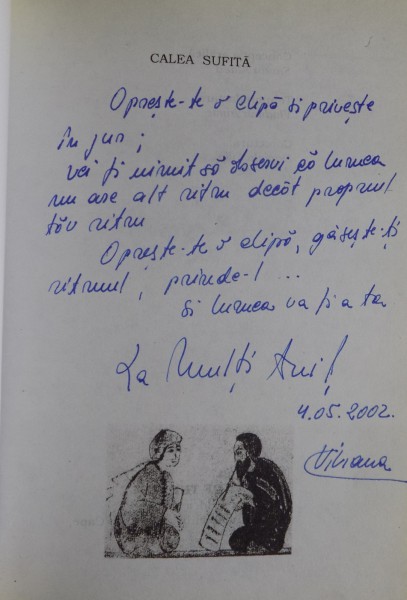 CALEA SUFITĂ
Oprește-te o clipă și privește
în jur;
vei fi uimit să observi că lumea
nu are alt ritm decât propriul
tău ritm
Oprește-te o clipă, găsește-ți
ritmul, prinde-l ...
și lumea va fi a ta
La Mulți Ani!
4.05.2002.